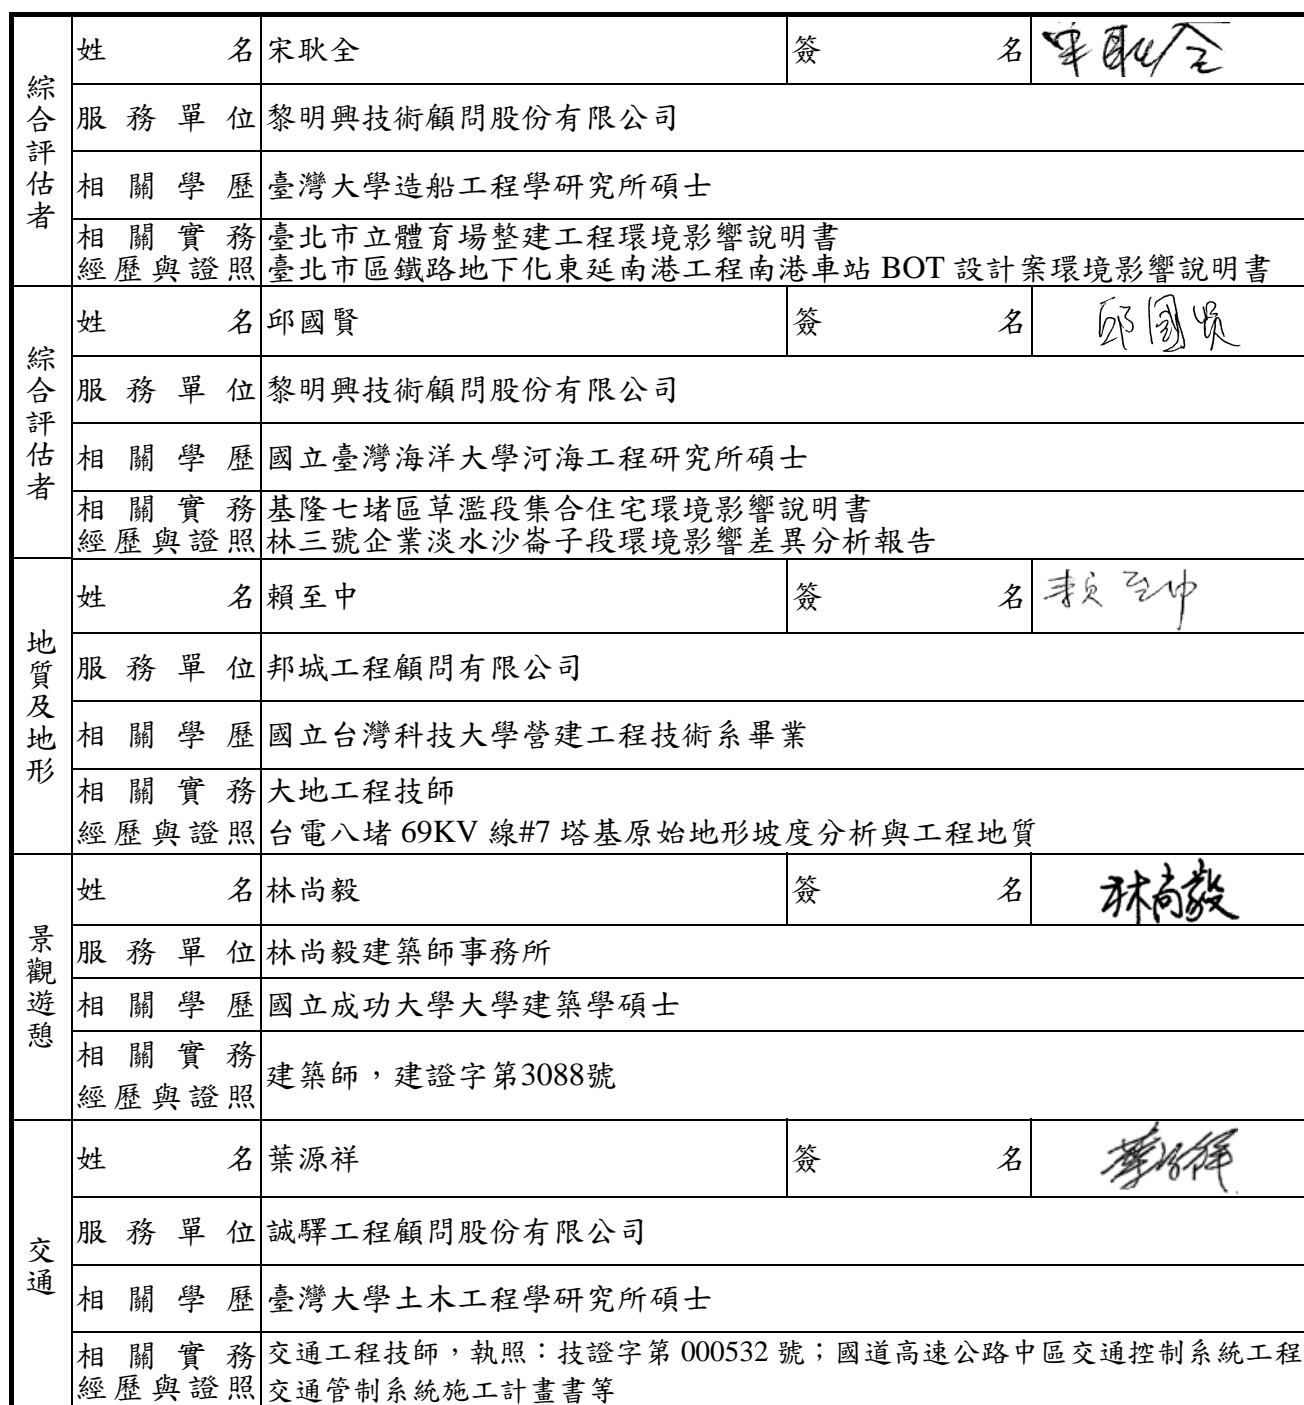 綜合評估者
姓名 宋耿全 簽名 宋耿全
服務單位 黎明興技術顧問股份有限公司
相關學歷 臺灣大學造船工程學研究所碩士
相關實務 臺北市立體育場整建工程環境影響說明書
經歷與證照 臺北市區鐵路地下化東延南港工程南港車站 BOT 設計案環境影響說明書
綜合評估者
姓名 邱國賢 簽名 邱國賢
服務單位 黎明興技術顧問股份有限公司
相關學歷 國立臺灣海洋大學河海工程研究所碩士
相關實務 基隆七堵區草濫段集合住宅環境影響說明書
經歷與證照 林三號企業淡水沙崙子段環境影響差異分析報告
地質及地形
姓名 賴至中 簽名 賴至中
服務單位 邦城工程顧問有限公司
相關學歷 國立台灣科技大學營建工程技術系畢業
相關實務 大地工程技師
經歷與證照 台電八堵 69KV 線#7 塔基原始地形坡度分析與工程地質
景觀遊憩
姓名 林尚毅 簽名 林尚毅
服務單位 林尚毅建築師事務所
相關學歷 國立成功大學大學建築學碩士
相關實務
經歷與證照 建築師，建證字第3088號
交通
姓名 葉源祥 簽名 葉源祥
服務單位 誠驛工程顧問股份有限公司
相關學歷 臺灣大學土木工程學研究所碩士
相關實務 交通工程技師，執照：技證字第 000532 號；國道高速公路中區交通控制系統工程
經歷與證照 交通管制系統施工計畫書等